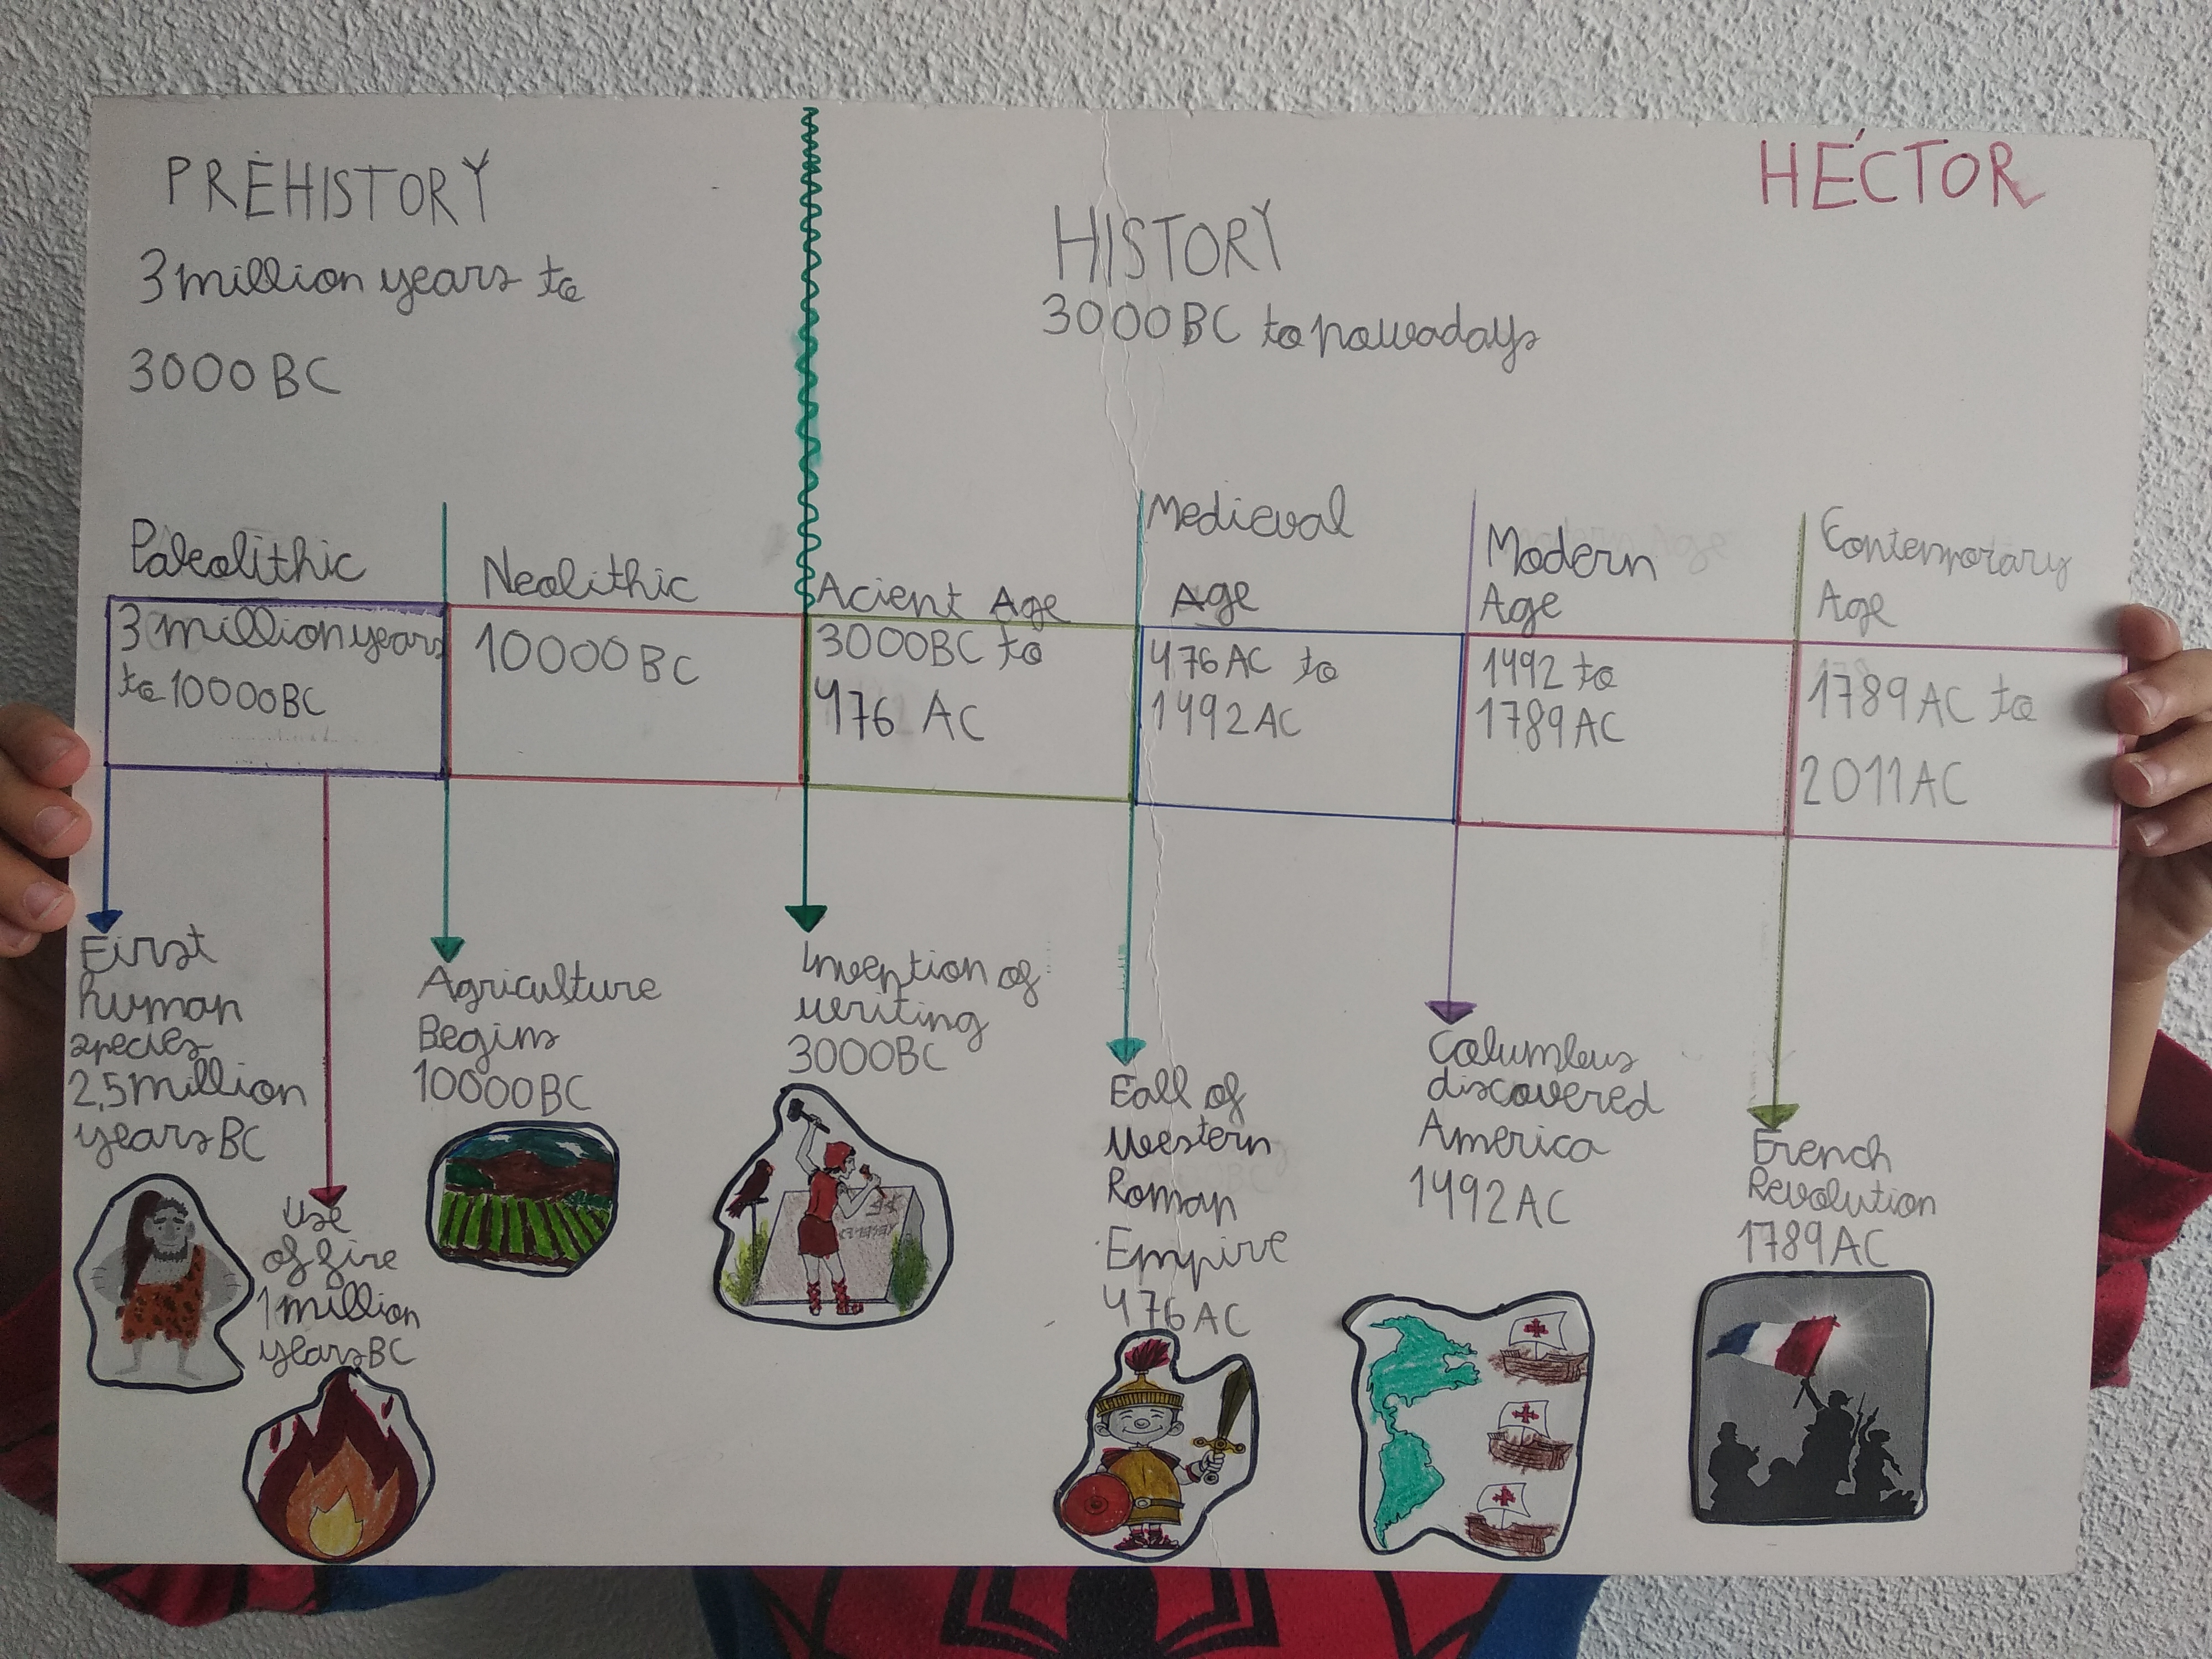 HÉCTOR
PREHISTORY
3 million years to
3000 BC
HISTORY
3000 BC to nowadays
Paleolithic
3 million years
to 10000 BC
Neolithic
10000 BC
Acient Age
3000 BC to
476 AC
Medieval
Age
476 AC to
1492 AC
Modern
Age
1492 to
1789 AC
Contemporary
Age
1789 AC to
2011 AC
First
human
species
2,5 million
years BC
Use
of fire
1 million
years BC
Agriculture
Begins
10000 BC
Invention of
writing
3000 BC
Fall of
Western
Roman
Empire
476 AC
Columbus
discovered
America
1492 AC
French
Revolution
1789 AC